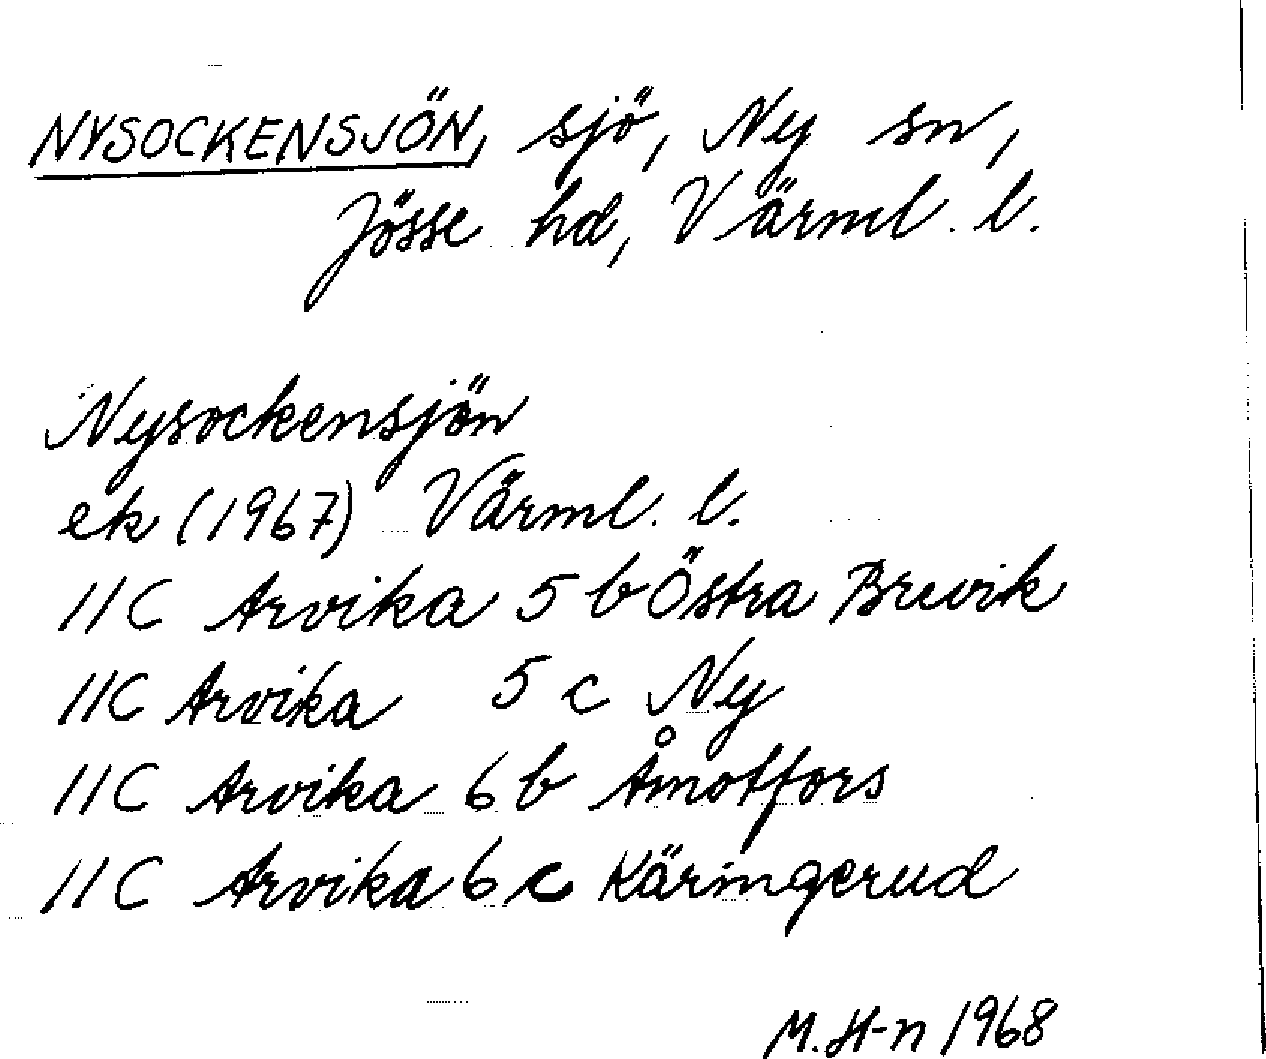 NYSOCKENSJÖN, sjö, Ny sn,
Jösse hd, Värml. l.
Nysockensjön
ek (1967) Värml. l.
11C Arvika 5 b Östra Brevik
11C Arvika 5 c Ny
11C Arvika 6 b Åmotfors
11C Arvika 6 c Käringerud
M. H-n 1968